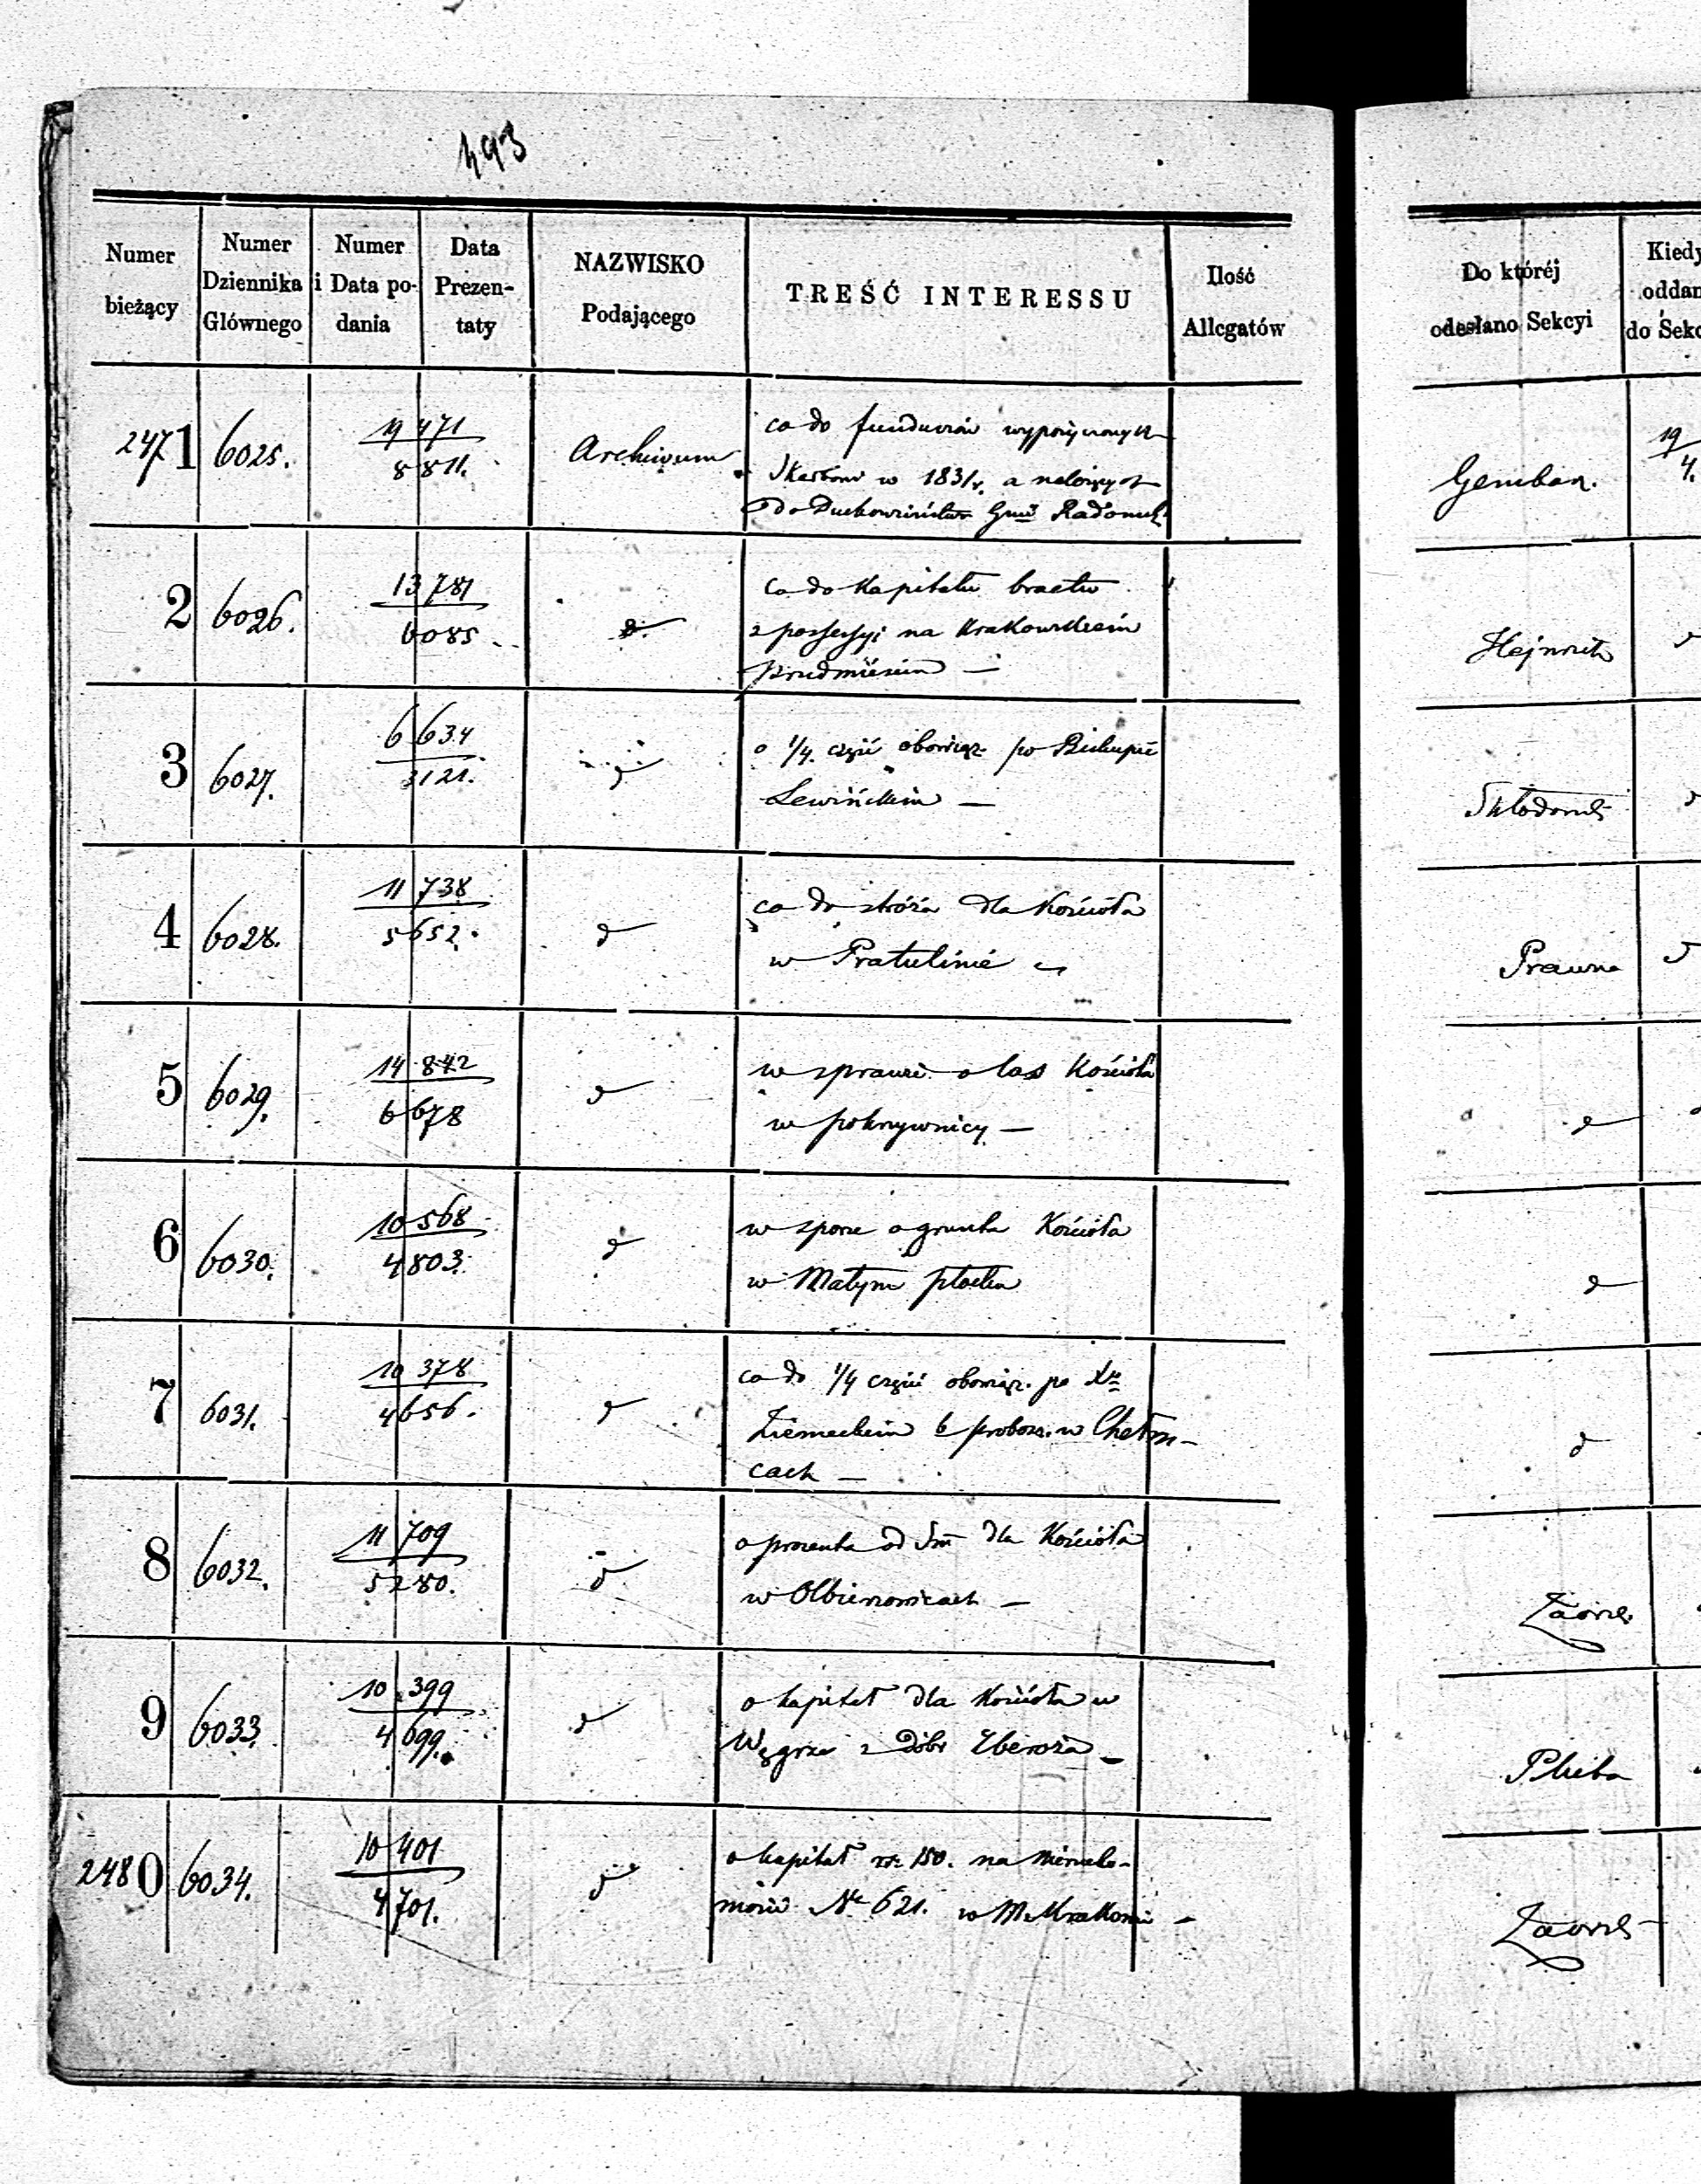 493
Numer bieżący | Numer Dziennika Głównego | Numer i Data podania | Data Prezentaty | NAZWISKO Podającego | TREŚĆ INTERESSU | Ilość Allegatów | Do któréj odesłano Sekcyi | Kiedy oddan do Sekc
2471 | 6025. | 19 471 / 8811. | Archiwum | co do funduszów wypożyczonych
Skarbowi w 1831 r. a należących
do Duchowieństwa Gub Radomsk | Gemban. | 19/4.
2 | 6026. | 13 781 / 6085 | d | co do Kapitału bractw
z possessyi na Krakowskiem
Przedmieściu — | Hejnrich | d
3 | 6027. | 6 634 / 3121. | d | o 1/4 część obowiąz. po Biskupie
Lewińskim — | Skłodowsk | d
4 | 6028. | 11 738 / 5652. | d | co do stróża dla Kościoła
w Pratulinie | Prawna | d
5 | 6029. | 14 842 / 6678 | d | w sprawie o las Kościoła
w pokrzywnicy — | d
6 | 6030. | 10 568 / 4803. | d | w sporze o grunta Kościoła
w Małym płocku | d
7 | 6031. | 10 378 / 4656. | d | co do 1/4 części obowiąz. po Xu
Ziemeckim b probosz. w Chełm-
cach — | d
8 | 6032. | 11 709 / 5280. | d | o procenta od Sm dla Kościoła
w Olbierzowicach —
9 | 6033. | 10 399 / 4699. | d | o kapitał dla Kościoła w
Węgrze z dóbr Zberoża —
2480 | 6034. | 10 401 / 4701. | d | o kapitał zr. 150. na nierucho-
mości No 621. w M. Krakowie —